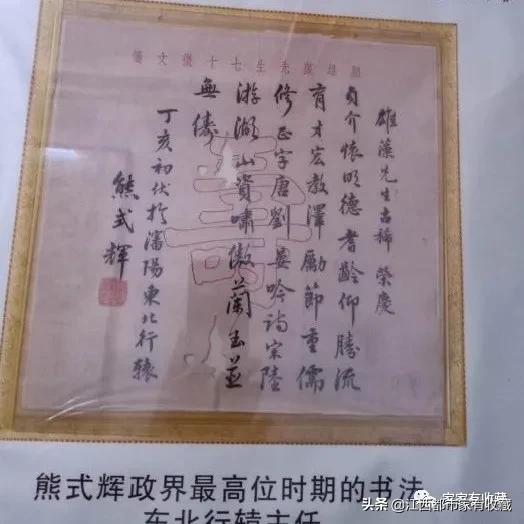 雄藻先生七十徵文箋
雄藻先生古稀榮慶
貞介懷明德耆齡仰勝流
育才宏教澤勵節重儒
修正字唐劉晏吟詩宋陸
游湖山資嘯傲蘭玉並
無儔
丁亥初伏於瀋陽東北行轅
熊式輝
壽
熊式辉政界最高位时期的书法
东北行辕主任
家家有收藏
头条 @江西都市家有收藏